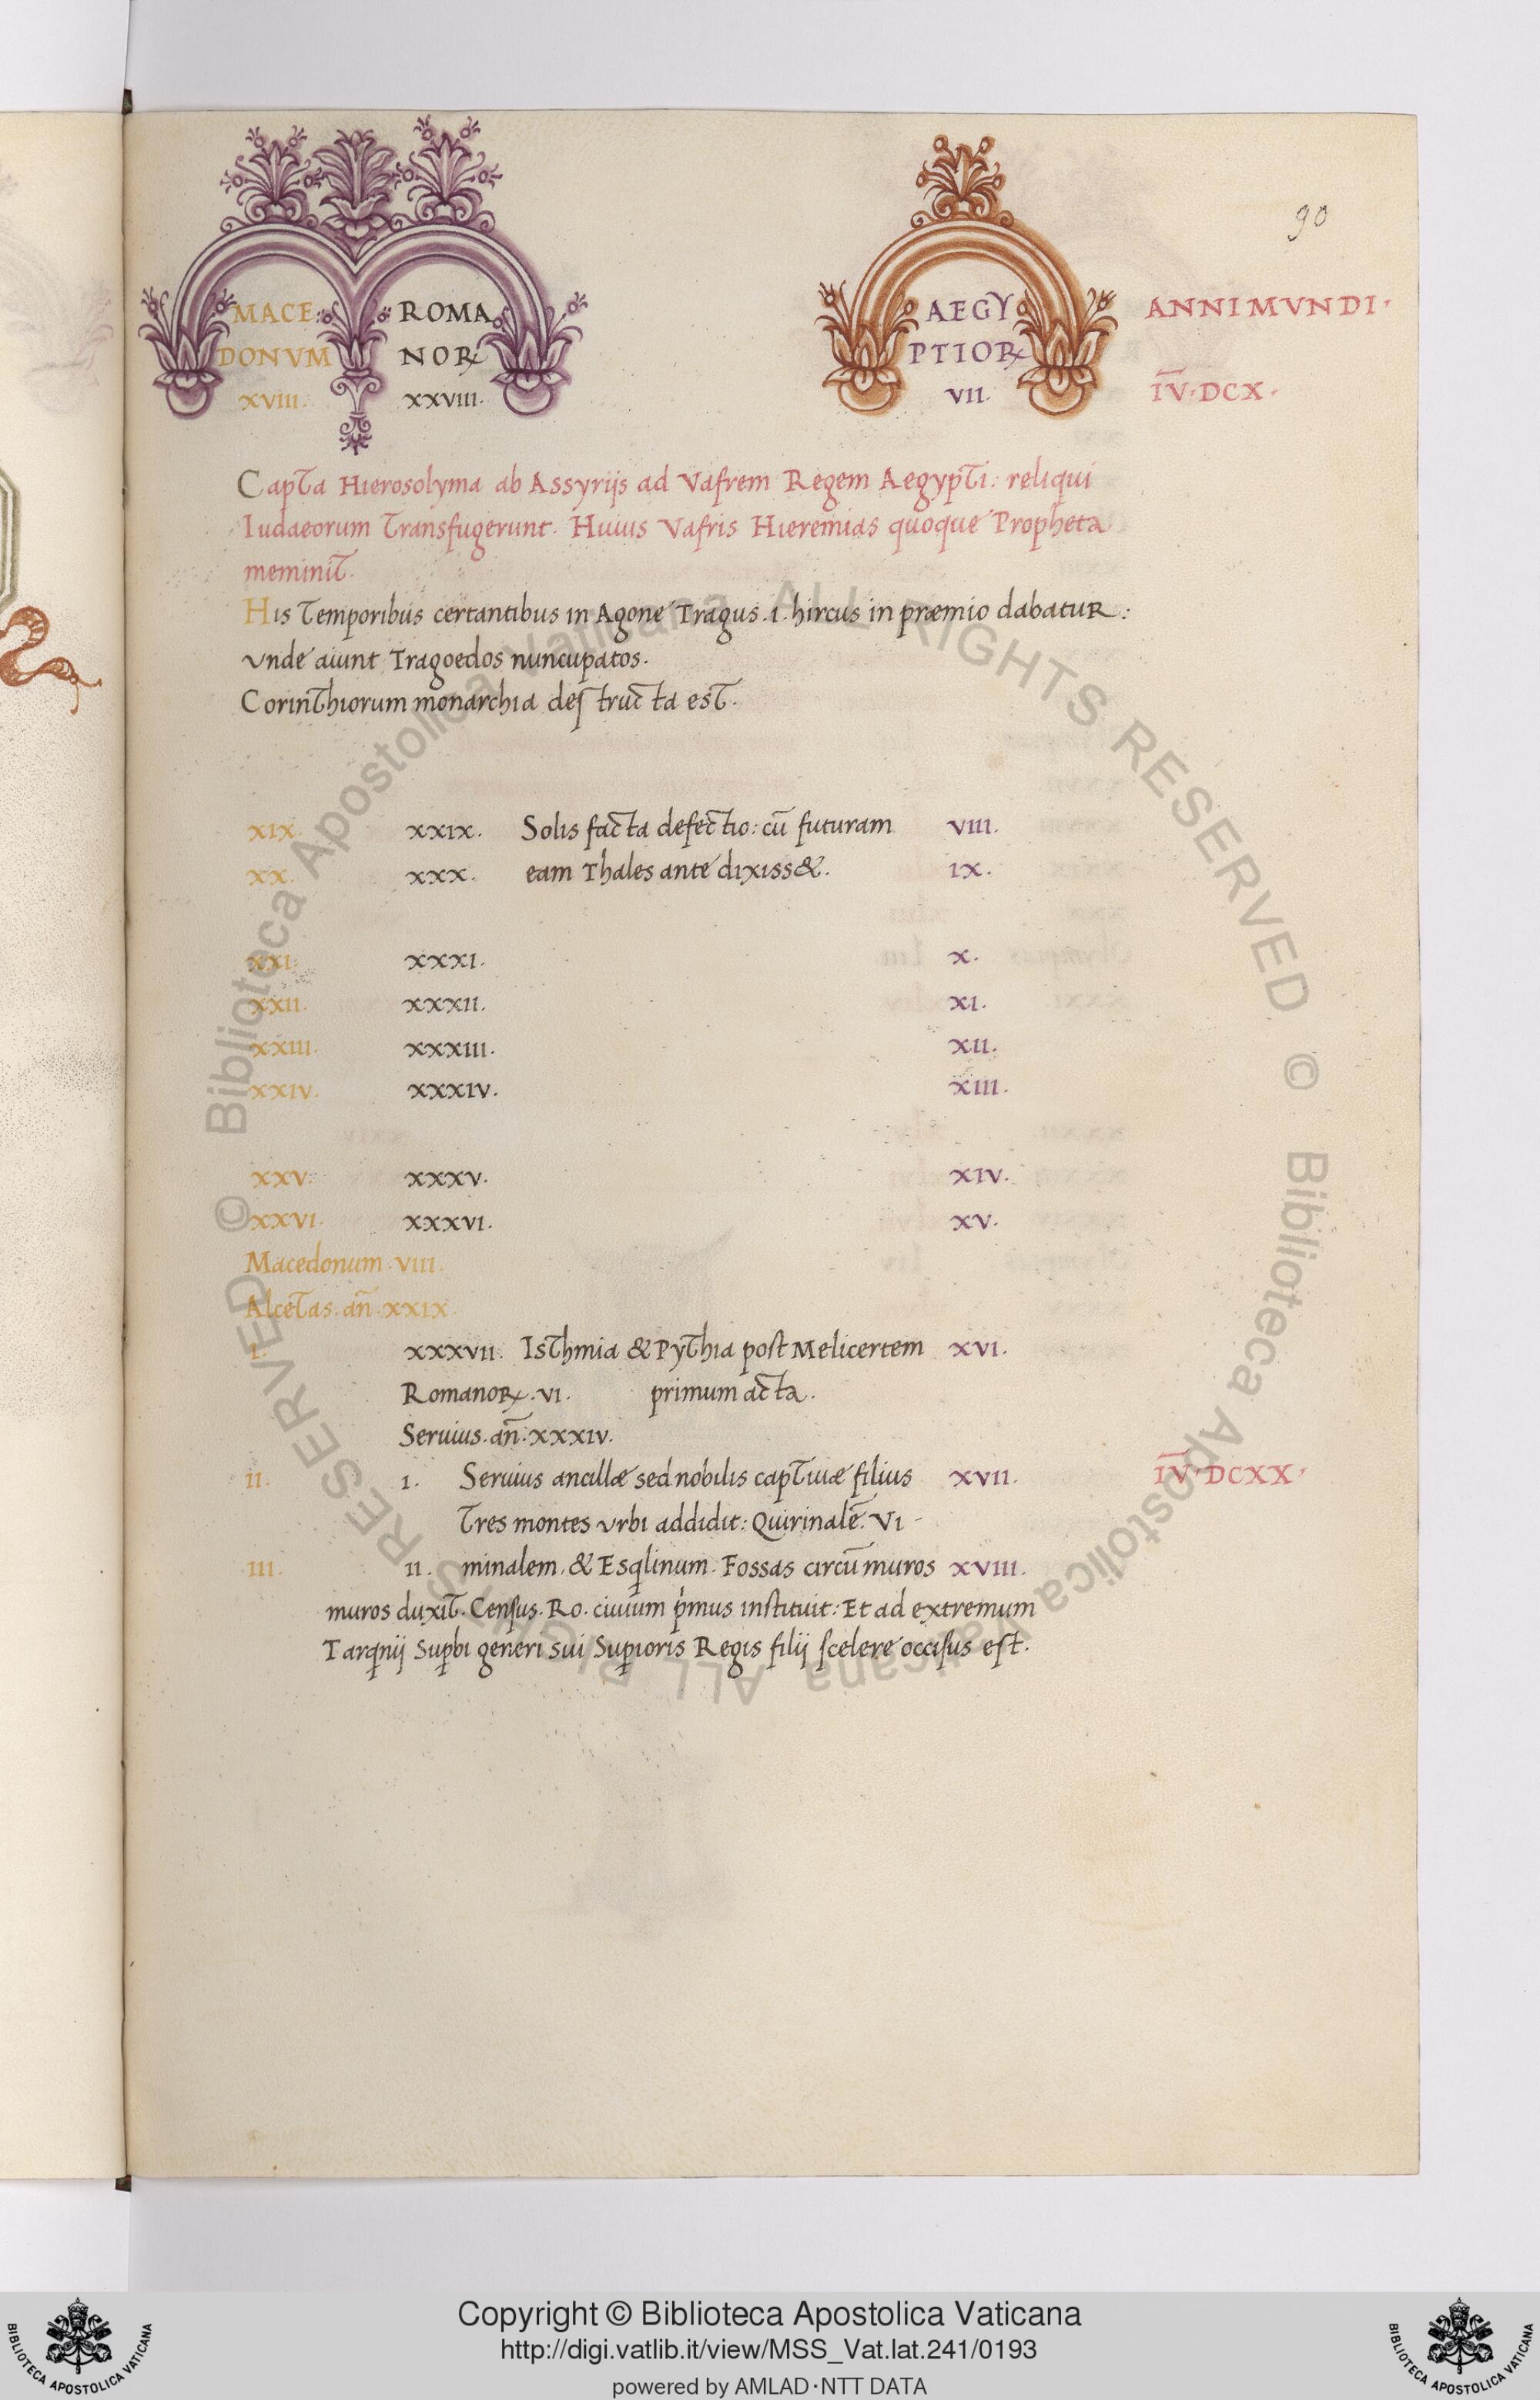 90
MACE ROMA AEGY ANNI MVNDI·
DONVM NOꝜ PTIOꝜ
XVIII· XXVIII· VII· I̅V̅·DCX·
Capta Hierosolyma ab Assyrijs ad Vafrem Regem Aegypti: reliqui
Iudaeorum Transfugerunt. Huius Vafris Hieremias quoque Propheta
meminit.
His Temporibus certantibus in Agone Tragus .i. hircus in præmio dabatuR:
vnde aiunt Tragoedos nuncupatos.
Corinthiorum monarchia destructa est.
XIX. XXIX. Solis facta defectio: cū futuram VIII.
XX. XXX. eam Thales ante dixiss&. IX.
XXI. XXXI. X.
XXII. XXXII. XI.
XXIII. XXXIII. XII.
XXIV. XXXIV. XIII.
XXV. XXXV. XIV.
XXVI. XXXVI. XV.
Macedonum .VIII.
Alcetas. an̄ .XXIX.
I. XXXVII. Isthmia & Pythia post Melicertem XVI.
RomanoꝜ .VI. primum acta.
Seruius. an̄. XXXIV.
II. I. Seruius ancillæ sed nobilis captiuæ filius XVII. I̅V̅·DCXX·
Tres montes vrbi addidit: Quirinalē. Vi-
III. II. minalem, & Esqlinum. Fossas circū muros XVIII.
muros duxit. Census. Ro. ciuium p̍mus instituit: Et ad extremum
Tarqnij Supbi generi sui Supioris Regis filij scelere occisus est.
© Biblioteca Apostolica Vaticana ALL RIGHTS RESERVED
© Biblioteca Apostolica Vaticana ALL RIGHTS RESERVED
Copyright © Biblioteca Apostolica Vaticana
http://digi.vatlib.it/view/MSS_Vat.lat.241/0193
powered by AMLAD·NTT DATA
BIBLIOTECA APOSTOLICA VATICANA
BIBLIOTECA APOSTOLICA VATICANA